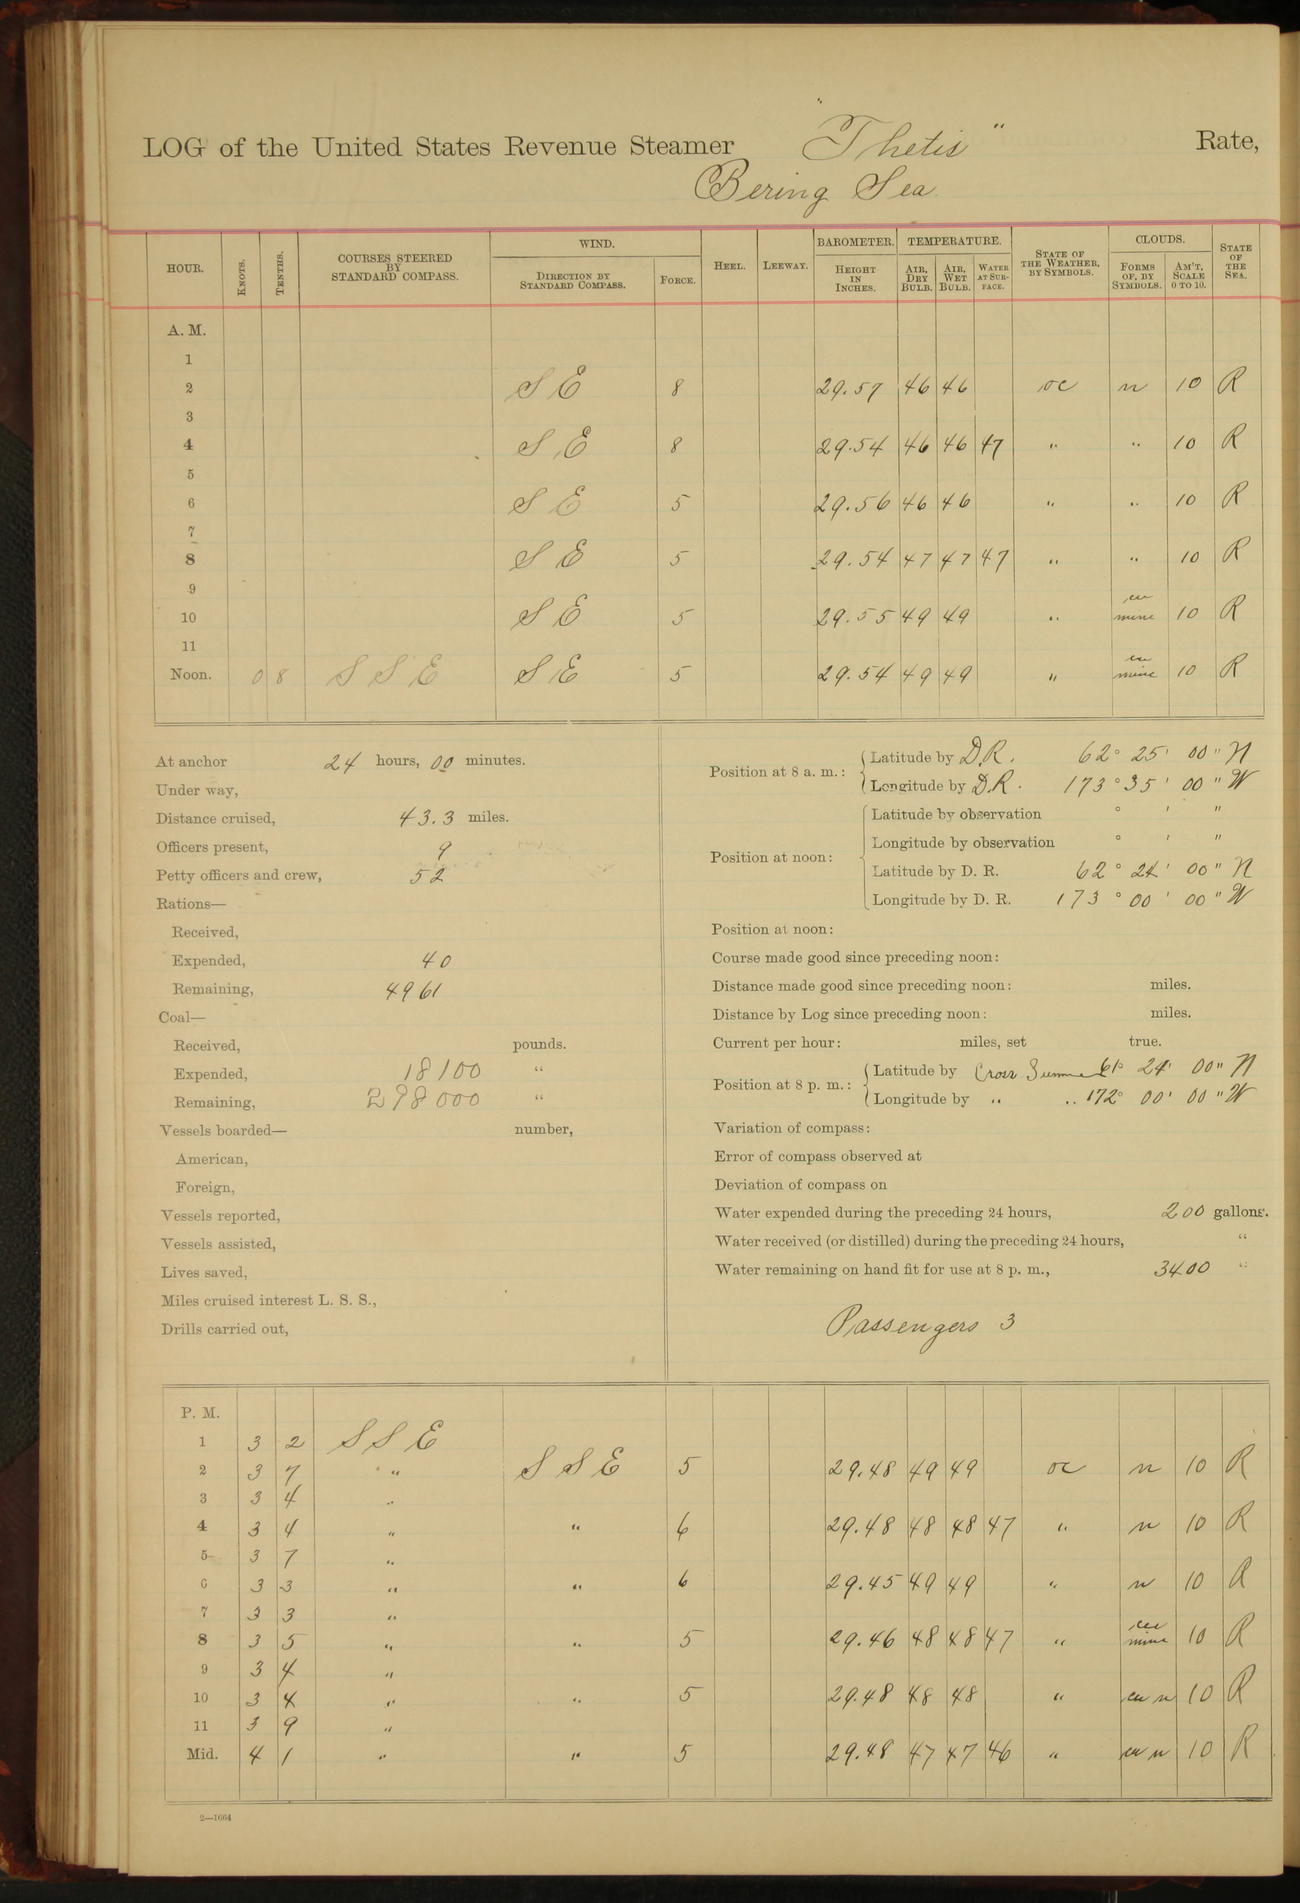 LOG of the United States Revenue Steamer "Thetis" Rate,
Bering Sea
HOUR. KNOTS. TENTHS. COURSES STEERED BY STANDARD COMPASS. WIND. DIRECTION BY STANDARD COMPASS. FORCE. HEEL. LEEWAY. BAROMETER. HEIGHT IN INCHES. TEMPERATURE. AIR, DRY BULB. AIR, WET BULB. WATER AT SURFACE. STATE OF THE WEATHER, BY SYMBOLS. CLOUDS. FORMS OF, BY SYMBOLS. AM'T, SCALE 0 TO 10. STATE OF THE SEA.
A. M.
1
2 S E 8 29.57 46 46 oc n 10 R
3
4 S E 8 29.54 46 46 47 " " 10 R
5
6 S E 5 29.56 46 46 " " 10 R
7
8 S E 5 29.54 47 47 47 " " 10 R
9
10 S E 5 29.55 49 49 " 10 R
11
Noon. 0 8 S S E S E 5 29.54 49 49 " 10 R
At anchor 24 hours, 00 minutes.
Under way,
Distance cruised, 43.3 miles.
Officers present, 9
Petty officers and crew, 52
Rations—
Received,
Expended, 40
Remaining, 4961
Coal—
Received, pounds.
Expended, 18100 "
Remaining, 298000 "
Vessels boarded— number,
American,
Foreign,
Vessels reported,
Vessels assisted,
Lives saved,
Miles cruised interest L. S. S.,
Drills carried out,
Position at 8 a. m.: Latitude by D.R. 62° 25' 00" N
Longitude by D.R. 173° 35' 00" W
Position at noon: Latitude by observation ° ' "
Longitude by observation ° ' "
Latitude by D. R. 62° 24' 00" N
Longitude by D. R. 173° 00' 00" W
Position at noon:
Course made good since preceding noon:
Distance made good since preceding noon: miles.
Distance by Log since preceding noon: miles.
Current per hour: miles, set true.
Position at 8 p. m.: Latitude by Cross 24' 00" N
Longitude by " " 172° 00' 00" W
Variation of compass:
Error of compass observed at
Deviation of compass on
Water expended during the preceding 24 hours, 200 gallons.
Water received (or distilled) during the preceding 24 hours, "
Water remaining on hand fit for use at 8 p. m., 3400 "
Passengers 3
P. M.
1 3 2 S S E
2 3 7 " S S E 5 29.48 49 49 oc n 10 R
3 3 4 "
4 3 4 " " 6 29.48 48 48 47 " n 10 R
5 3 7 "
6 3 3 " " 6 29.45 49 49 " n 10 R
7 3 3 "
8 3 5 " " 5 29.46 48 48 47 " 10 R
9 3 4 "
10 3 4 " " 5 29.48 48 48 " cu n 10 R
11 3 9 "
Mid. 4 1 " " 5 29.48 47 47 46 " cu n 10 R
2—1664